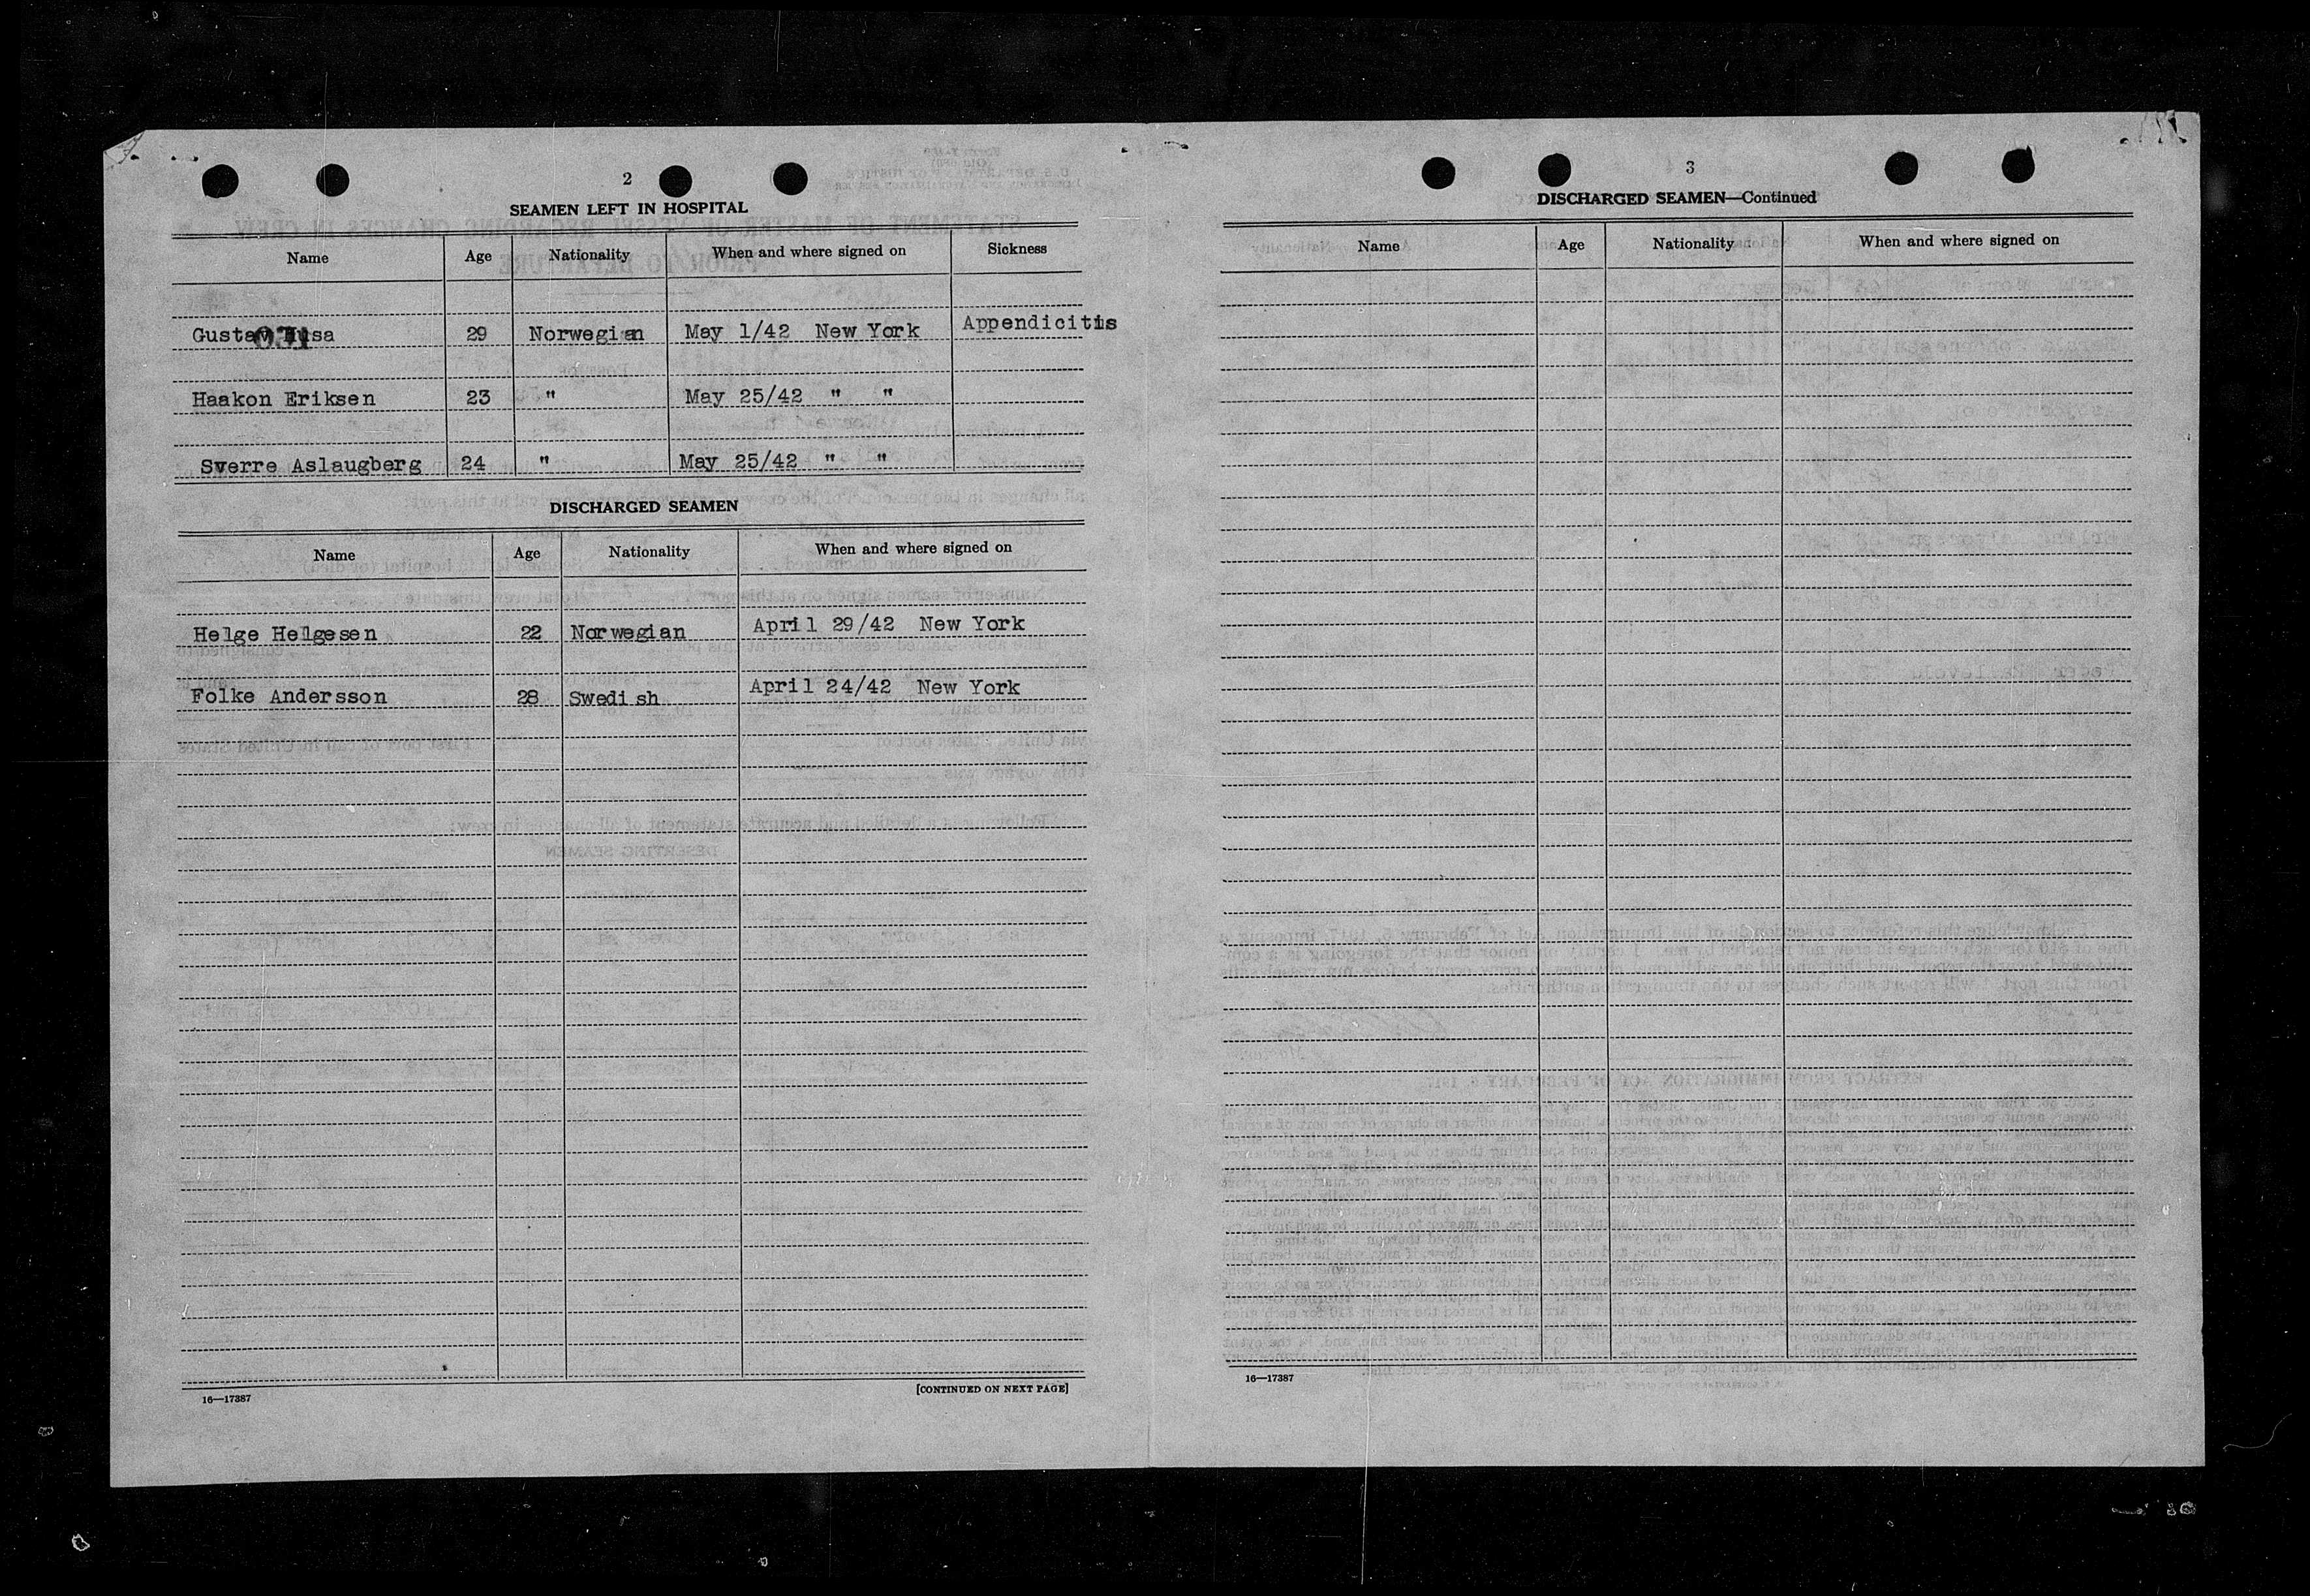 2
SEAMEN LEFT IN HOSPITAL
Name Age Nationality When and where signed on Sickness
Gustav Husa 29 Norwegian May 1/42 New York Appendicitis
Haakon Eriksen 23 " May 25/42 " "
Sverre Aslaugberg 24 " May 25/42 " "
DISCHARGED SEAMEN
Name Age Nationality When and where signed on
Helge Helgesen 22 Norwegian April 29/42 New York
Folke Andersson 28 Swedish April 24/42 New York
16—17387 [CONTINUED ON NEXT PAGE]
3
DISCHARGED SEAMEN—Continued
Name Age Nationality When and where signed on
16—17387